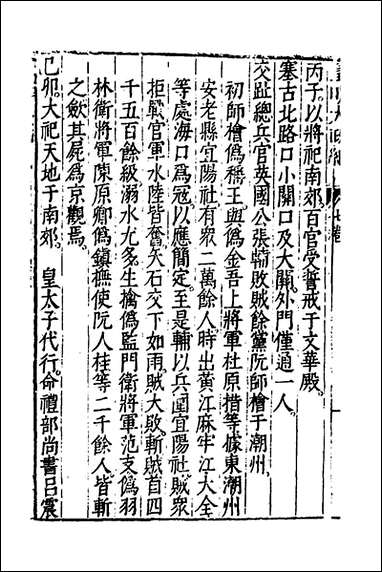 丙子以將祀南郊百官受誓戒于文華殿
塞古北路口小關口及大關外門僅通一人
交趾總兵官英國公張輔敗賊餘黨阮師檜于潮州
初師檜僞稱王與僞金吾上將軍杜原措等據東潮州
安老縣宜陽社有衆二萬餘人時出黃江麻牢江大全
等處海口爲冠以應簡定至是輔以兵圍宜陽社賊衆
拒戰官軍水陸皆奮矢石交下如雨賊大敗斬賊首四
千五百餘級溺水尤多生擒僞監門衛將軍范支僞羽
林衛將軍陳原卿僞鎮撫使阮人桂等二千餘人皆斬
之斂其屍爲京觀焉
己卯大祀天地于南郊 皇太子代行命禮部尚書呂震